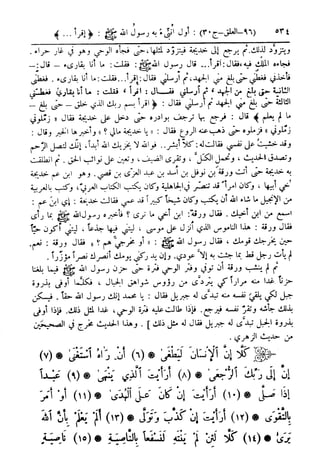 ٥٣٤ (٩٦-العلق-ج٣٠) : أول أنبىء به رسول الله ﷺ : { إقرأ ... }
ويتزود لذلك ثم يرجع إلى خديجة فيتزود لمثلها، حتى فجأه الوحي وهو في غار حراء.
فجاءه الملك فيه، فقال: إقرأ... قال رسول الله ﷺ: فقلت: ما أنا بقارىء - قال:-
فأخذني فغطني حتى بلغ مني الجهد، ثم أرسلني فقال: إقرأ... فقلت: ما أنا بقارىء. فغطني
الثانية حتى بلغ من الجهد، ثم أرسلني فقال: إقرأ، فقلت: ما أنا بقارىء فغطني
الثالثة حتى بلغ مني الجهد ثم أرسلني فقال: ﴿ إقرأ بسم ربك الذي خلق - حتى بلغ -
ما لم يعلم ﴾ قال: فرجع بها ترجف بوادره حتى دخل على خديجة فقال: « زملوني
زملوني » فزملوه حتى ذهب عنه الروع فقال: « يا خديجة مالي ؟ » وأخبرها الخبر وقال:
وقد خشيت على نفسي. فقالت له: كلا أبشر.. فوالله لا يخزيك الله أبداً، إنك لتصل الرحم
وتصدق الحديث، وتحمل الكل، وتقري الضيف، وتعين على نوائب الحق. ثم انطلقت
به خديجة حتى أتت ورقة بن نوفل بن أسد بن عبد العزى بن قصي. وهو ابن عم خديجة
أخي أبيها، وكان امرأ قد تنصر في الجاهلية وكان يكتب الكتاب العربي، وكتب بالعربية
من الإنجيل ما شاء الله أن يكتب وكان شيخاً كبيراً قد عمي فقالت خديجة: أي ابن عم:
اسمع من ابن أخيك. فقال ورقة: ابن أخي ما ترى ؟ فأخبره رسول الله ﷺ بما رأى
فقال ورقة: هذا الناموس الذي أنزل على موسى، ليتني فيها جذعاً.. ليتني أكون حياً
حين يخرجك قومك، فقال رسول الله ﷺ : « أو مخرجي هم ؟ » فقال ورقة: نعم.
لم يأت رجل قط بما جئت به إلا عودي. وإن يدركني يومك أنصرك نصراً مؤزراً.
ثم لم ينشب ورقة أن توفي وفتر الوحي فترة حتى حزن رسول الله ﷺ فيما بلغنا
حزناً غدا منه مراراً كي يتردى من رؤوس شواهق الجبال، فكلما أوفى بذروة
جبل لكي يلقي نفسه منه تبدى له جبريل فقال: يا محمد إنك رسول الله حقاً. فيسكن
بذلك جأشه وتقر نفسه فيرجع. فإذا طالت عليه فترة الوحي، غدا لمثل ذلك. فإذا أوفى
بذروة الجبل تبدى له جبريل فقال له مثل ذلك ]. وهذا الحديث مخرج في الصحيحين
من حديث الزهري.
﴿ كَلَّا إِنَّ الْإِنسَانَ لَيَطْغَىٰ ﴾ (٦) أَن رَّآهُ اسْتَغْنَىٰ ﴾ (٧)
إِنَّ إِلَىٰ رَبِّكَ الرُّجْعَىٰ ﴾ (٨) أَرَأَيْتَ الَّذِي يَنْهَىٰ ﴾ (٩) عَبْداً
إِذَا صَلَّىٰ ﴾ (١٠) أَرَأَيْتَ إِن كَانَ عَلَى الْهُدَىٰ ﴾ (١١) أَوْ أَمَرَ
بِالتَّقْوَىٰ ﴾ (١٢) أَرَأَيْتَ إِن كَذَّبَ وَتَوَلَّىٰ ﴾ (١٣) أَلَمْ يَعْلَم بِأَنَّ اللَّهَ
يَرَىٰ ﴾ (١٤) كَلَّا لَئِن لَّمْ يَنتَهِ لَنَسْفَعاً بِالنَّاصِيَةِ ﴾ (١٥) نَاصِيَةٍ